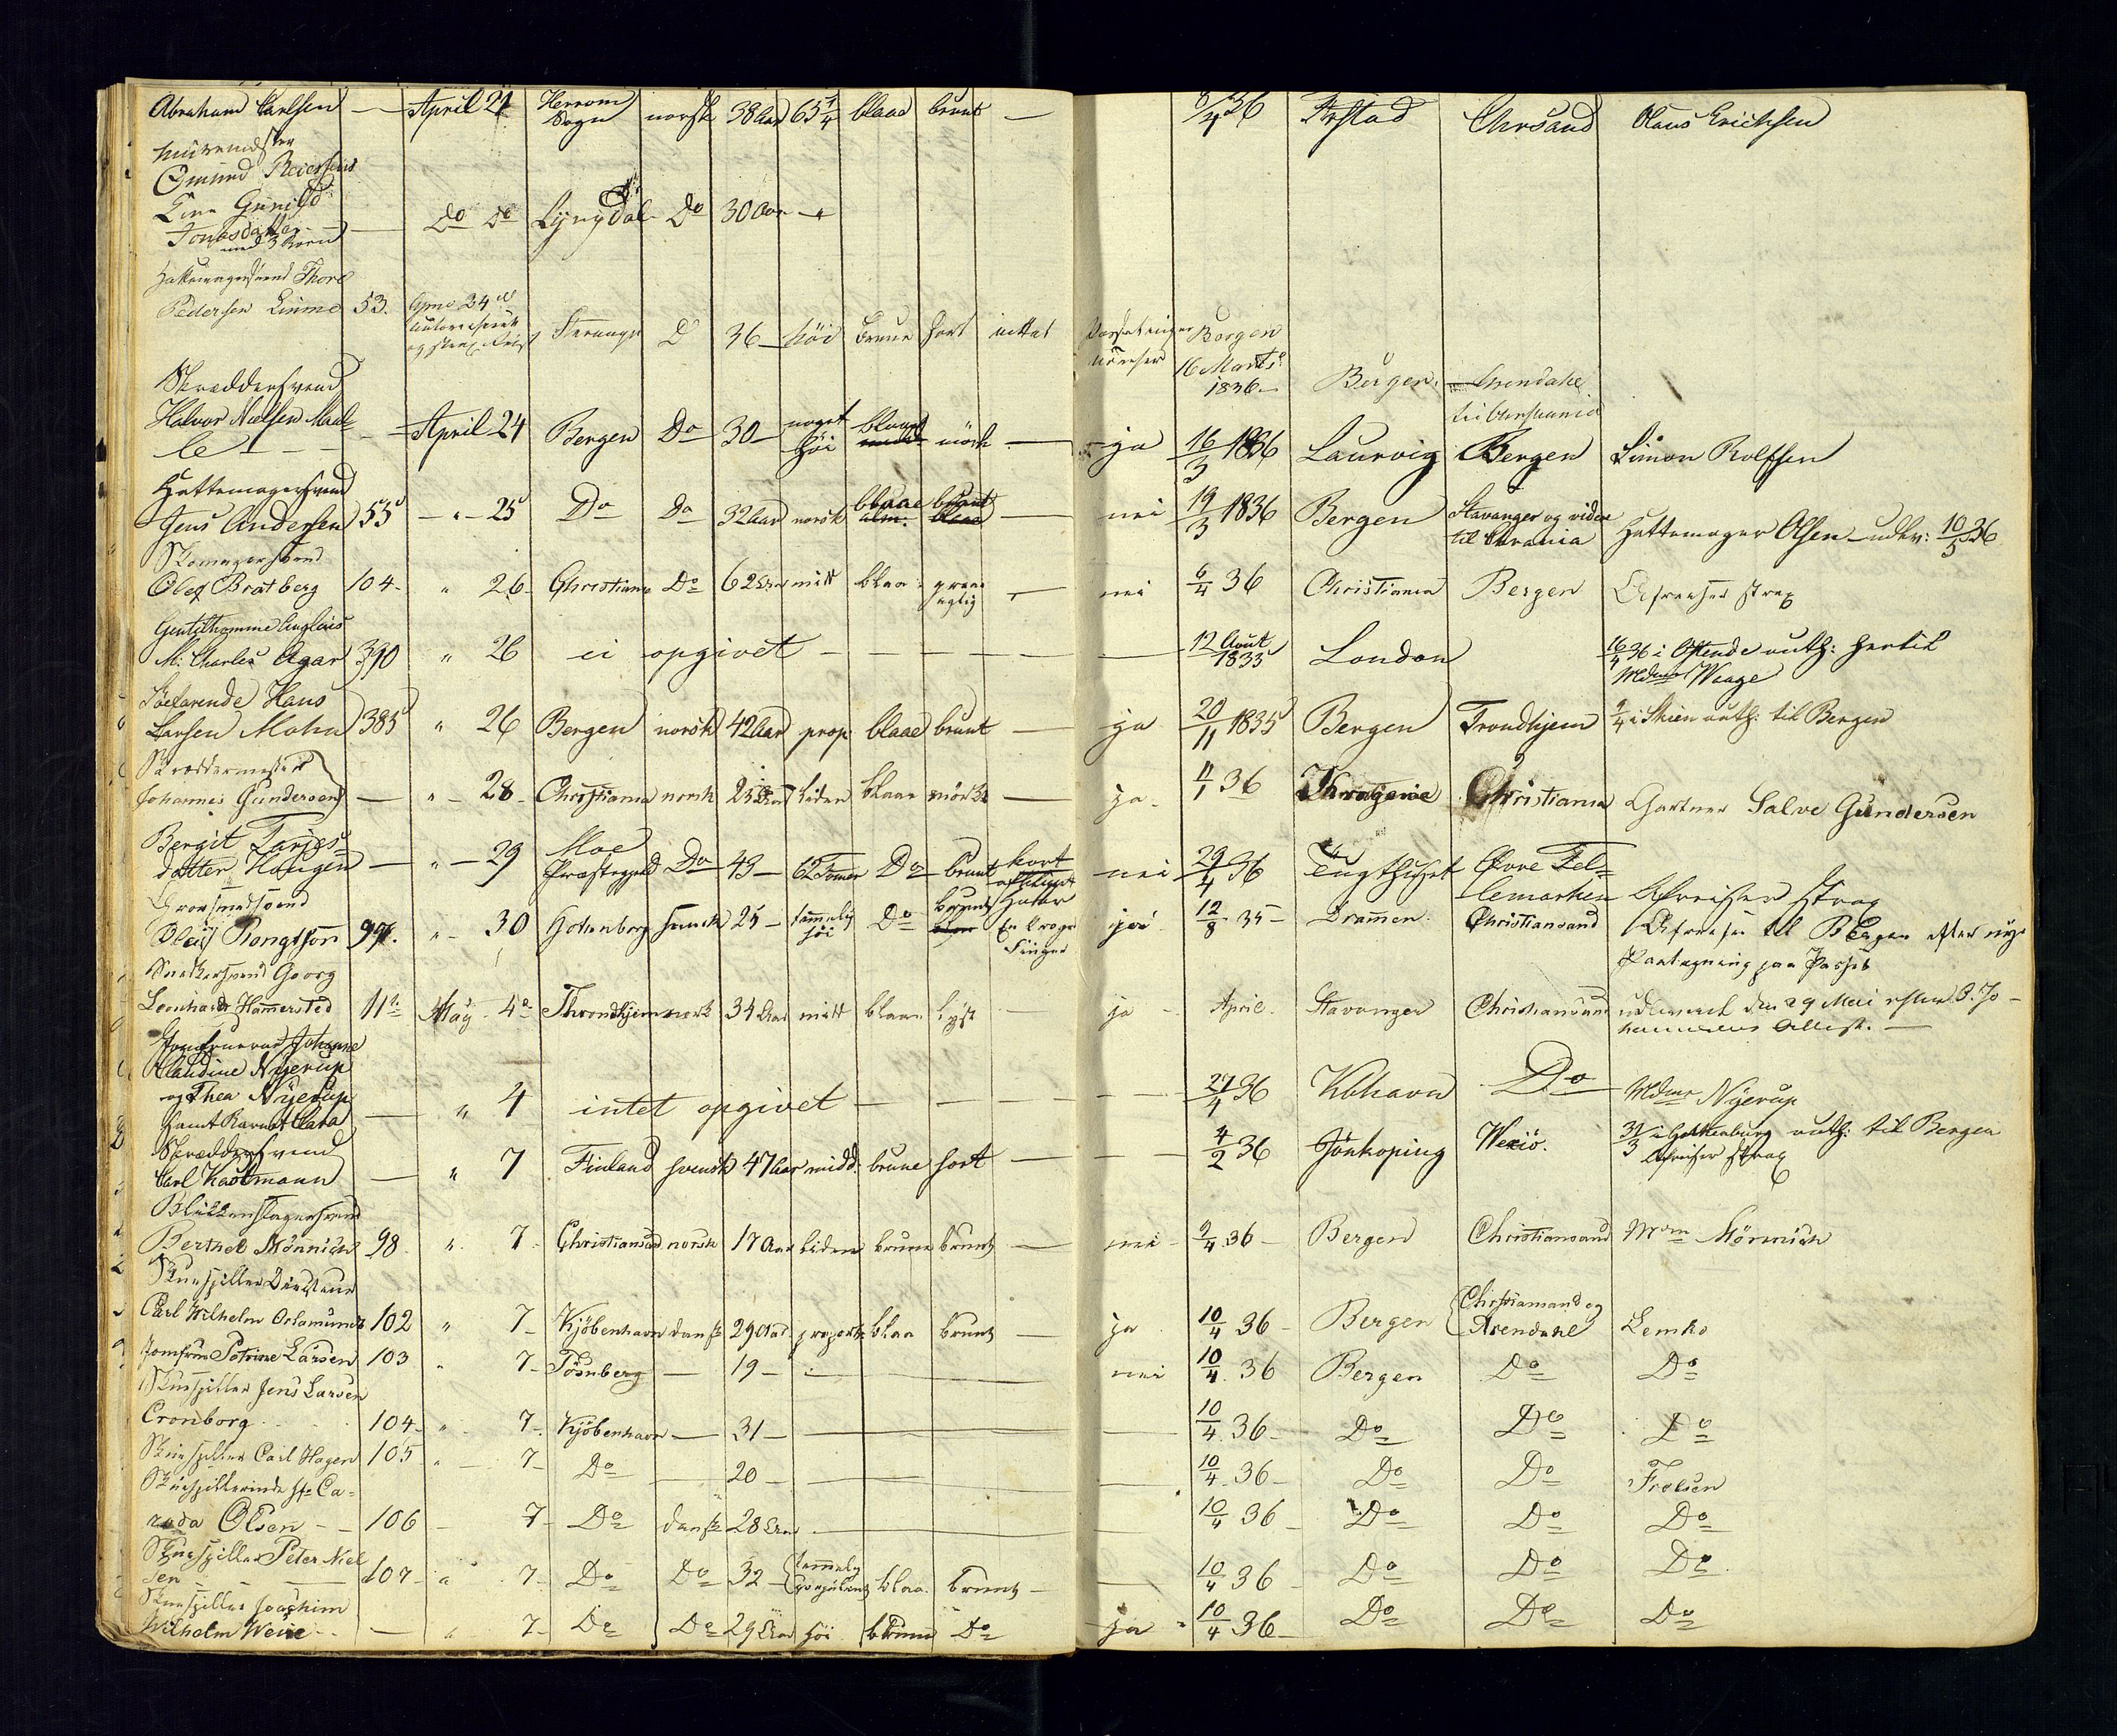 Abraham Carlsen — April 21 Herrom Sogn norsk 38 Aar 65 1/4 blaae brunt — 8/4 36 Arstad Chrsand Olaus Erichsen
Omund Reiersens
Gunild
Jonasdatter med 3 Børn — Do Do Lyngdal Do 30 Aar
Hattemagersvend Thore
Pedersen 53. Do 36 høi brune sort intet Bergen 16 Marts 1836 Bergen Arendahl
Skræddersvend
Halvor Nielsen — April 24 Bergen Do 30 noget høi blaae mørk — ja 16/3 1836 Laurvig Bergen Simon Rolfsen
Hattemagersvend
Jens Andersen 55 — " 25 Do Do 32 Aar norsk blaae brunt — nei 19/3 1836 Bergen Stavanger og videre til Hattemager Olsen udlev: 10/5 36
Skomagersvend
Olef Bratberg 104 " 26 Christiania Do 62 Aar midt blaa — nei 6/4 36 Christiania Bergen Afreiser strax
Gentilhomme Anglais
M: Charles Agar 390 " 26 ei opgivet — 12 Aout 1835 London 16/4 36 i Ostende auth: hertil Mdme Waage
Søefarende Hans
Larsen Mohn 385 " 26 Bergen norsk 42 Aar prop blaae brunt — ja 20/11 1835 Bergen Trondhjem 9/4 i Skien auth: til Bergen
Skræddermester
Johannes Gundersen — " 28 Christiania norsk 25 Aar liden blaae mørkt — ja 11/1 36 Christiania Gartner Salve Gundersen
Bergit Tarjes-
datter Haugen — " 29 Moe Præstegjeld Do 43 — 62 Tommer Do brunt kort afklippet Haar nei 29/4 36 Tugthuset Øvre Tellemarken Afreiser strax
Olaus Bengtson 99. " 30 Gottenborg svensk 25 — temmelig høi Do brunt En kroget Finger ja 12/8 35 Drammen Christiansand Afreiser til Bergen efter nye Paategning paa Passet
Snedkersvend Georg
Leonhard Hammersted 112 May 4 Throndhjem norsk 34 Aar midt blaae lyst — ja April Stavanger Christiansand udleveret den 29 Mai efter
Jomfruerne Johanne
Claudine Nyerup
og Thea Nyerup
samt Barnet Clara — " 4 intet opgivet — 27/4 36 Kbhavn Do Mdme Nyerup
Skræddersvend
Carl Kaulmann — " 7 Finland svensk 47 Aar midd: brune sort — 4/2 36 Jönkoping Wexiö. 31/3 i Gothenburg auth: til Bergen Afreiser strax
Blikkenslagersvend
Berthel Mönnich 98 " 7 Christiansand norsk 17 Aar liden brune brunt — nei 9/4 36 Bergen Christiansand Mdm Mönnich
Skuespiller Directeur
Carl Wilhelm Orlamundt 102 " 7 Kjöbenhavn dansk 29 Aar proport. blaa brunt — ja 10/4 36 Bergen Christiansand og Arendahl Lemke
Jomfru Petrine Larsen 103 " 7 Tønsberg — 19 — nei 10/4 36 Bergen Do Do
Skuespiller Jens Larsen
Cronborg 104 " 7 Kjöbenhavn — 31 — 10/4 36 Do Do Do
Skuespiller Carl Hagen 105 " 7 Do — 20 — 10/4 36 Do Do
Skuespillerinde
Olsen 106 7 Do dansk 28 Aar — 10/4 36 Do Do Do
Skuespiller Peter Niel
sen 107 " 7 Do Do 32 — temmelig blaa brunt — 10/4 36 Do Do Do
Skuespiller Joachim
Wilhelm Weise — " 7 Do Do 29 Aar høi brune Do ja 10/4 36 Do Do Do